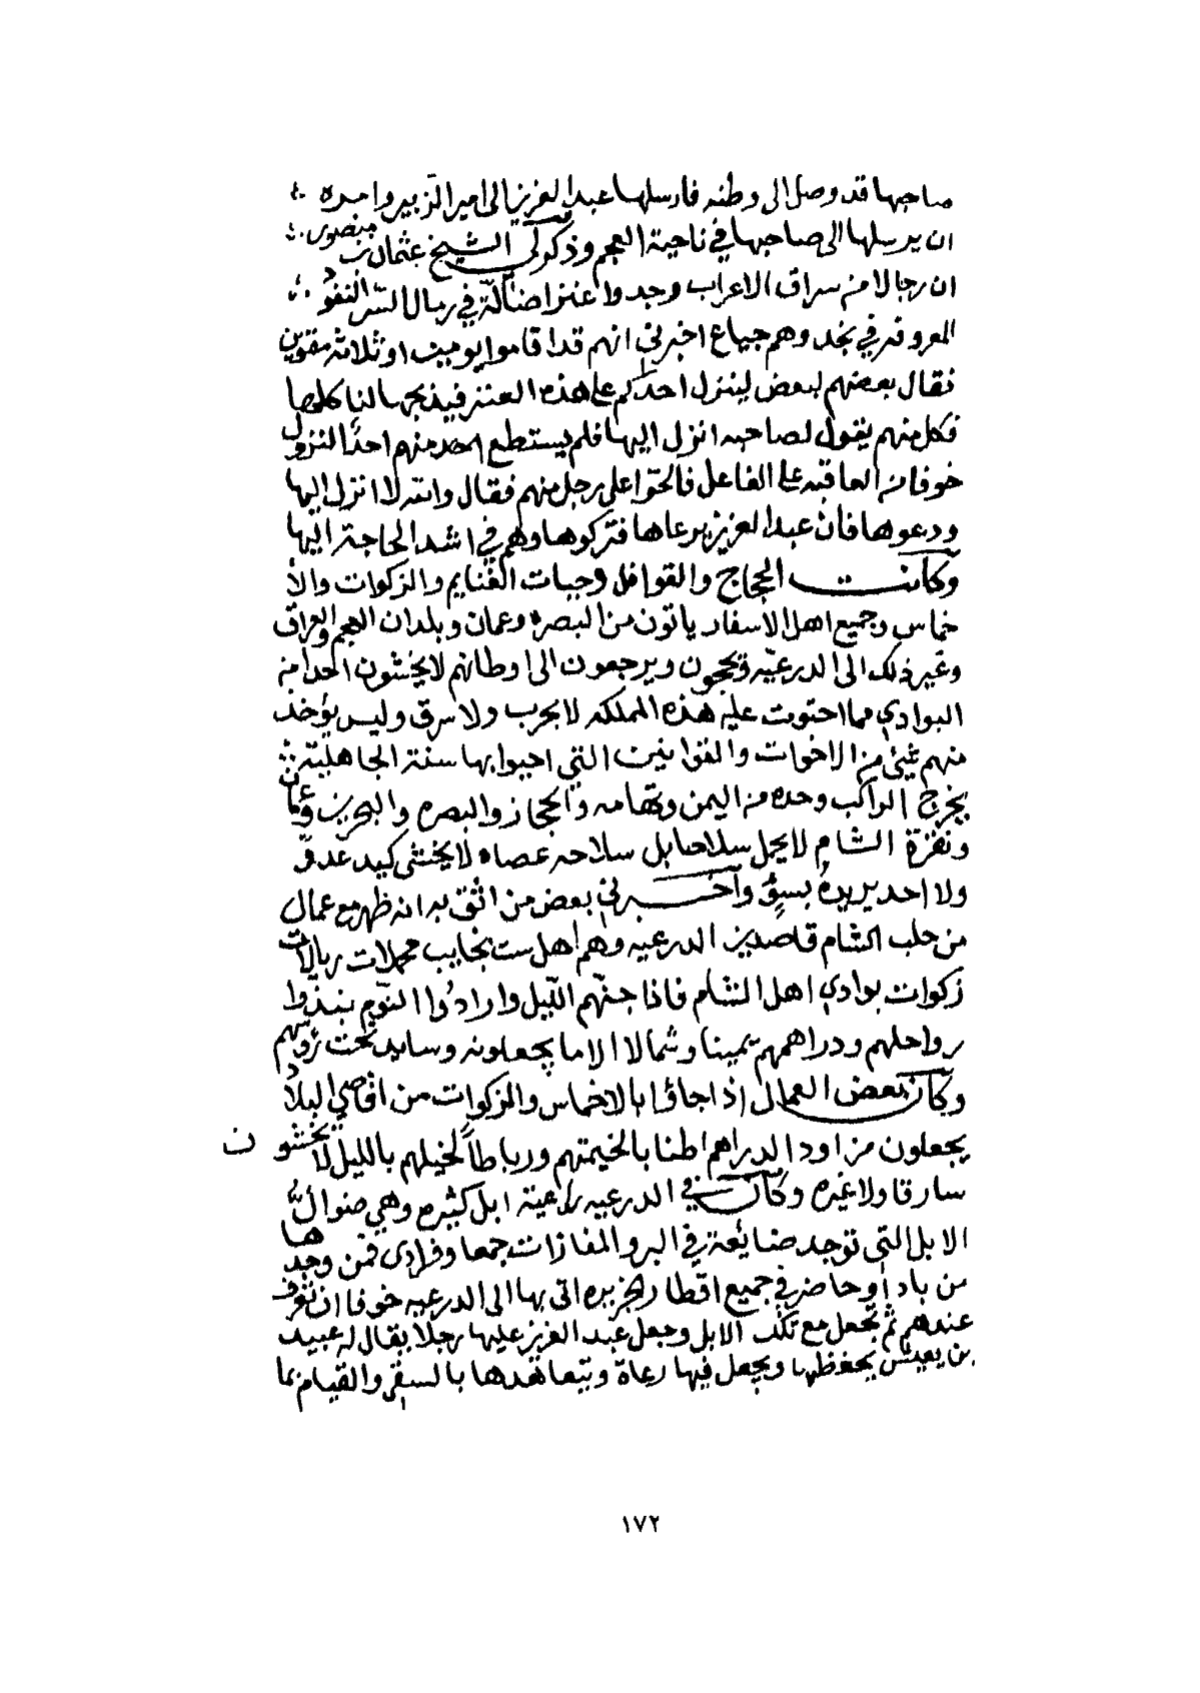 صاحبها قد وصل الى وطنه فارسلها عبدالعزيز الى امير الزبير وامره
ان يرسلها الى صاحبها في ناحية العجم وذكر لي الشيخ عثمان بن منصور
ان رجالا من سراق الاعراب وجدوا عنزا ضالّة في رمال السّر النفو
المعروفه في نجد وهم جياع اخبرني انهم قد اقاموا يومين او ثلاثة مقوين
فقال بعضهم لبعض لينزل احدكم على هذه العنز فيذبحها لناكلها
فكل منهم يقول لصاحبه انزل اليها فلم يستطع احد منهم احدًا النزول
خوفا من العاقبه على الفاعل فالحّوا على رجل منهم فقال والله لا انزل اليها
ودعوها فان عبدالعزيز يرعاها فتركوها وهم في اشد الحاجة اليها
وكانت الحجاج والقوافل وجبات الغنايم والزكوات والا
خماس وجميع اهل الاسفار ياتون من البصره وعمان وبلدان العجم والعراق
وغير ذلك الى الدرعيّه ويحجون ويرجعون الى اوطانهم لا يخشون احدا من
البوادي مما احتوت عليه هذه المملكه لا بحرب ولا سرق وليس يؤخذ
منهم شيئ من الاخوات والقوانين التي احيوا بها سنة الجاهلية
يخرج الراكب وحده من اليمن وتهامه والحجاز والبصره والبحرين وعمان
ونقرة الشام لا يحمل سلاحا بل سلاحه عصاه لا يخشى كيد عدوّ
ولا احد يريده بسؤٍ واخبرني بعض من اثق به انه ظهر مع عمال
من حلب الشام قاصدين الدرعيه وهم اهل ست نجايب محملات ريالات
زكوات بوادي اهل الشام فاذا جنّهم اللّيل وارادُوا النّوم نبذوا
رواحلهم ودراهمهم يمينا وشمالا الا ما يجعلونه وسايد تحت رؤسهم
وكان بعض العمال اذا جاؤا بالاخماس والزكوات من اقاصي البلاد
يجعلون مزاود الدراهم اطنابا لخيمتهم ورباطاً لخيلهم بالليل لا يخشون
سارقا ولا غيره وكان في الدرعيه راعية ابل كثيره وهي ضوالُّ
الابل التي توجد ضائعة في البر والمفازات جمعا وفرادى فمن وجدها
من باد او حاضر في جميع اقطار الجزيره اتى بها الى الدرعيه خوفا ان تعرف
عندهم ثم تجعل مع تلك الابل وجعل عبد العزيز عليها رجلا يقال له عبيد
بن يعيش يحفظها ويجعل فيها رعاة ويتعاهدها بالسقي والقيام بما
١٧٢